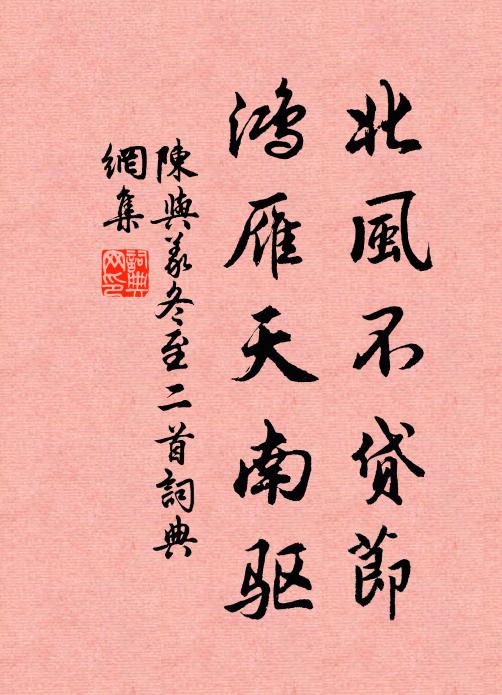 北風不贷節
鴻雁天南驱
陳與义冬至二首詞典
網集
詞典网印